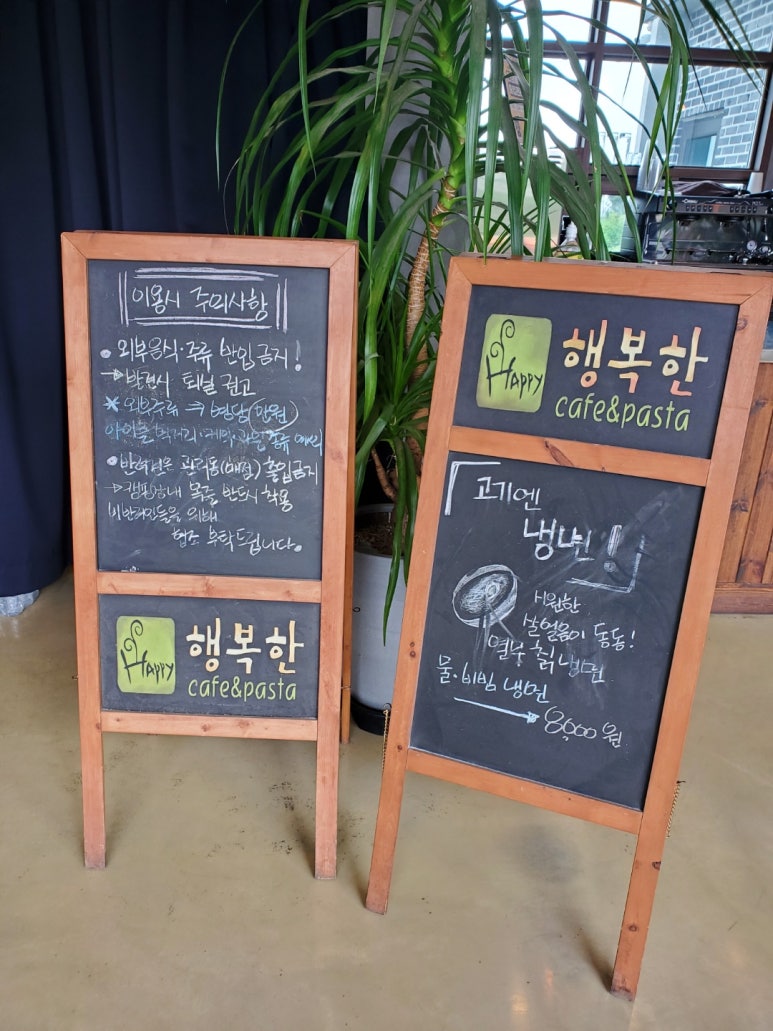 이용시 주의사항
외부음식·주류 반입금지!
→발견시 퇴실 권고
* 외부주류 → 병당 (만원)
아이들 먹거리·과일 종류 예외
반려견은 관리동(매점) 출입금지
→캠핑장내 목줄 반드시 착용
비반려인들을 위해
협조 부탁드립니다.
Happy
행복한
cafe&pasta
Happy
행복한
cafe&pasta
고기엔
냉면!
시원한
살얼음이 동동!
열무 칡 냉면
물·비빔 냉면
→ 8,000원